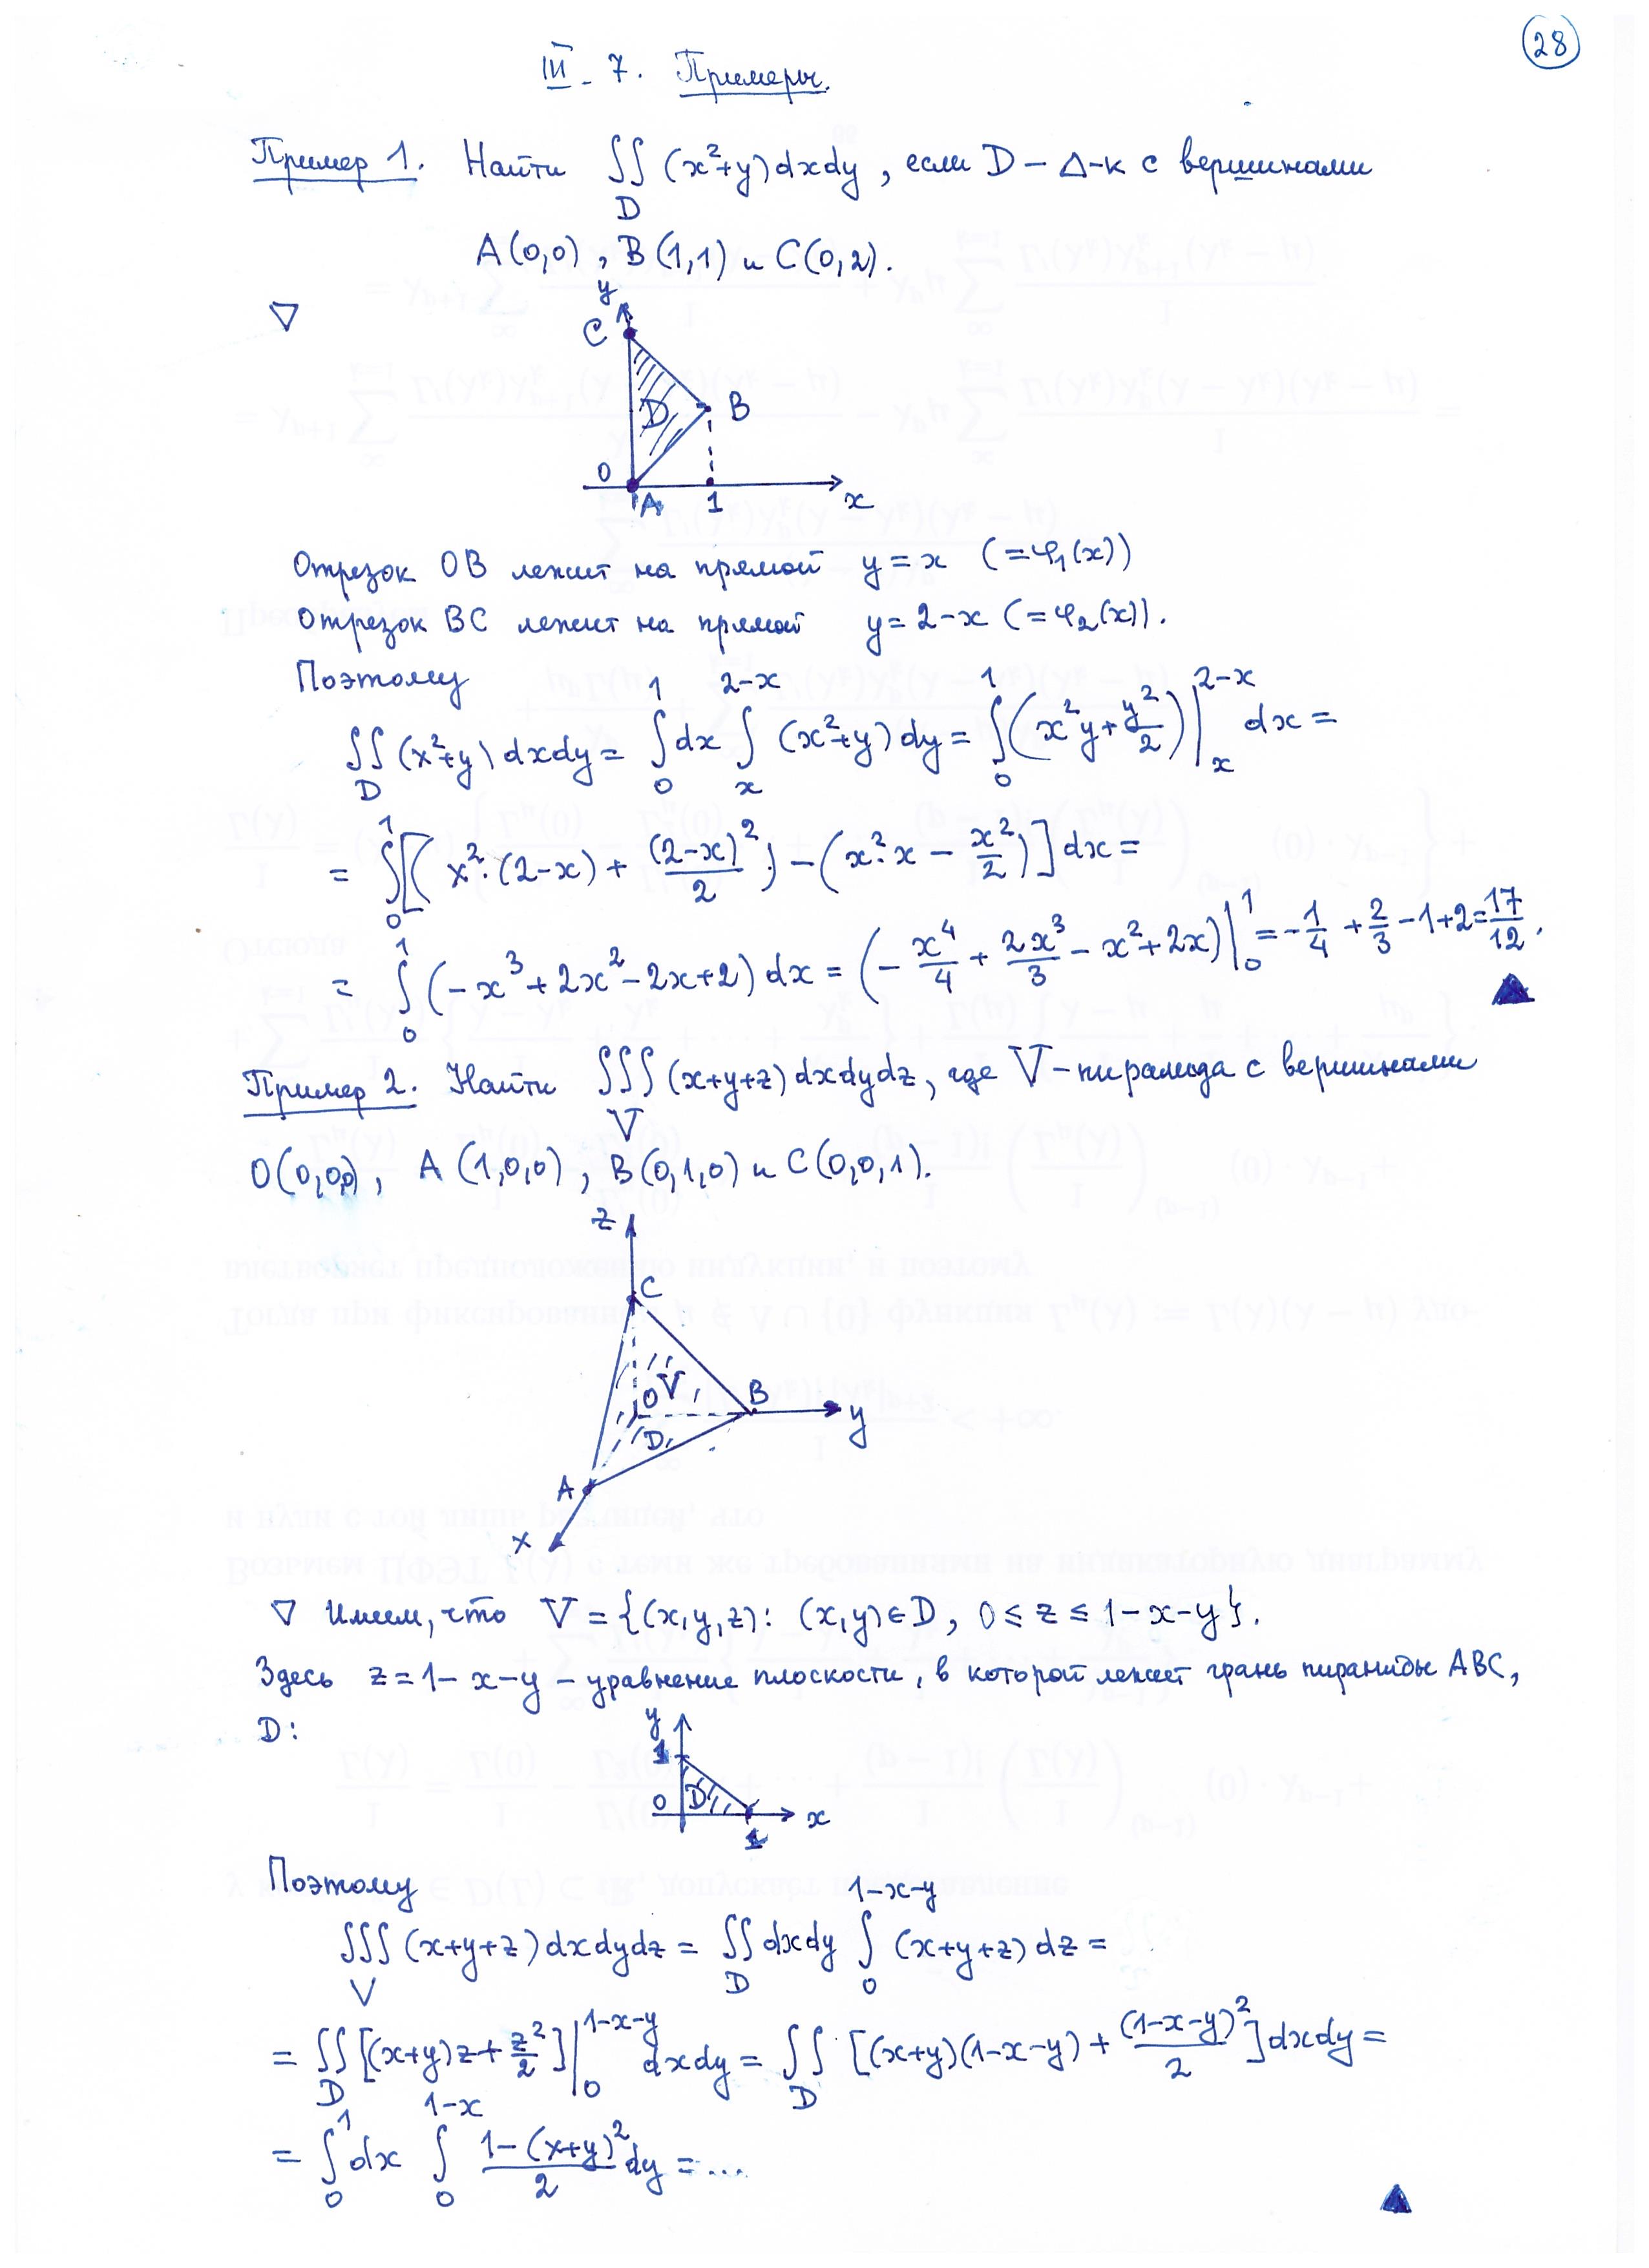 28
III-7. Примеры.
Пример 1. Найти ∬_D (x²+y)dxdy, если D – Δ-к с вершинами
A(0,0), B(1,1) и C(0,2).
▽
y
C
D
B
0
A
1
x
Отрезок OB лежит на прямой y=x (=φ₁(x))
Отрезок BC лежит на прямой y=2-x (=φ₂(x)).
Поэтому
∬_D (x²+y)dxdy = ∫_0^1 dx ∫_x^{2-x} (x²+y)dy = ∫_0^1 (x²y + y²/2)|_x^{2-x} dx =
= ∫_0^1 [(x²·(2-x) + (2-x)²/2) – (x²·x – x²/2)] dx =
= ∫_0^1 (-x³+2x²-2x+2) dx = (-x⁴/4 + 2x³/3 - x² + 2x)|_0^1 = -1/4 + 2/3 - 1 + 2 = 17/12.
▲
Пример 2. Найти ∭_V (x+y+z)dxdydz, где V – пирамида с вершинами
O(0,0,0), A(1,0,0), B(0,1,0) и C(0,0,1).
z
C
V
O
B
y
D
A
x
▽ Имеем, что V = {(x,y,z): (x,y)∈D, 0≤z≤1-x-y}.
Здесь z=1-x-y – уравнение плоскости, в которой лежит грань пирамиды ABC,
D:
y
1
0
D
x
1
Поэтому
∭_V (x+y+z)dxdydz = ∬_D dxdy ∫_0^{1-x-y} (x+y+z)dz =
= ∬_D [(x+y)z + z²/2]|_0^{1-x-y} dxdy = ∬_D [(x+y)(1-x-y) + (1-x-y)²/2] dxdy =
= ∫_0^1 dx ∫_0^{1-x} (1-(x+y)²)/2 dy = ...
▲